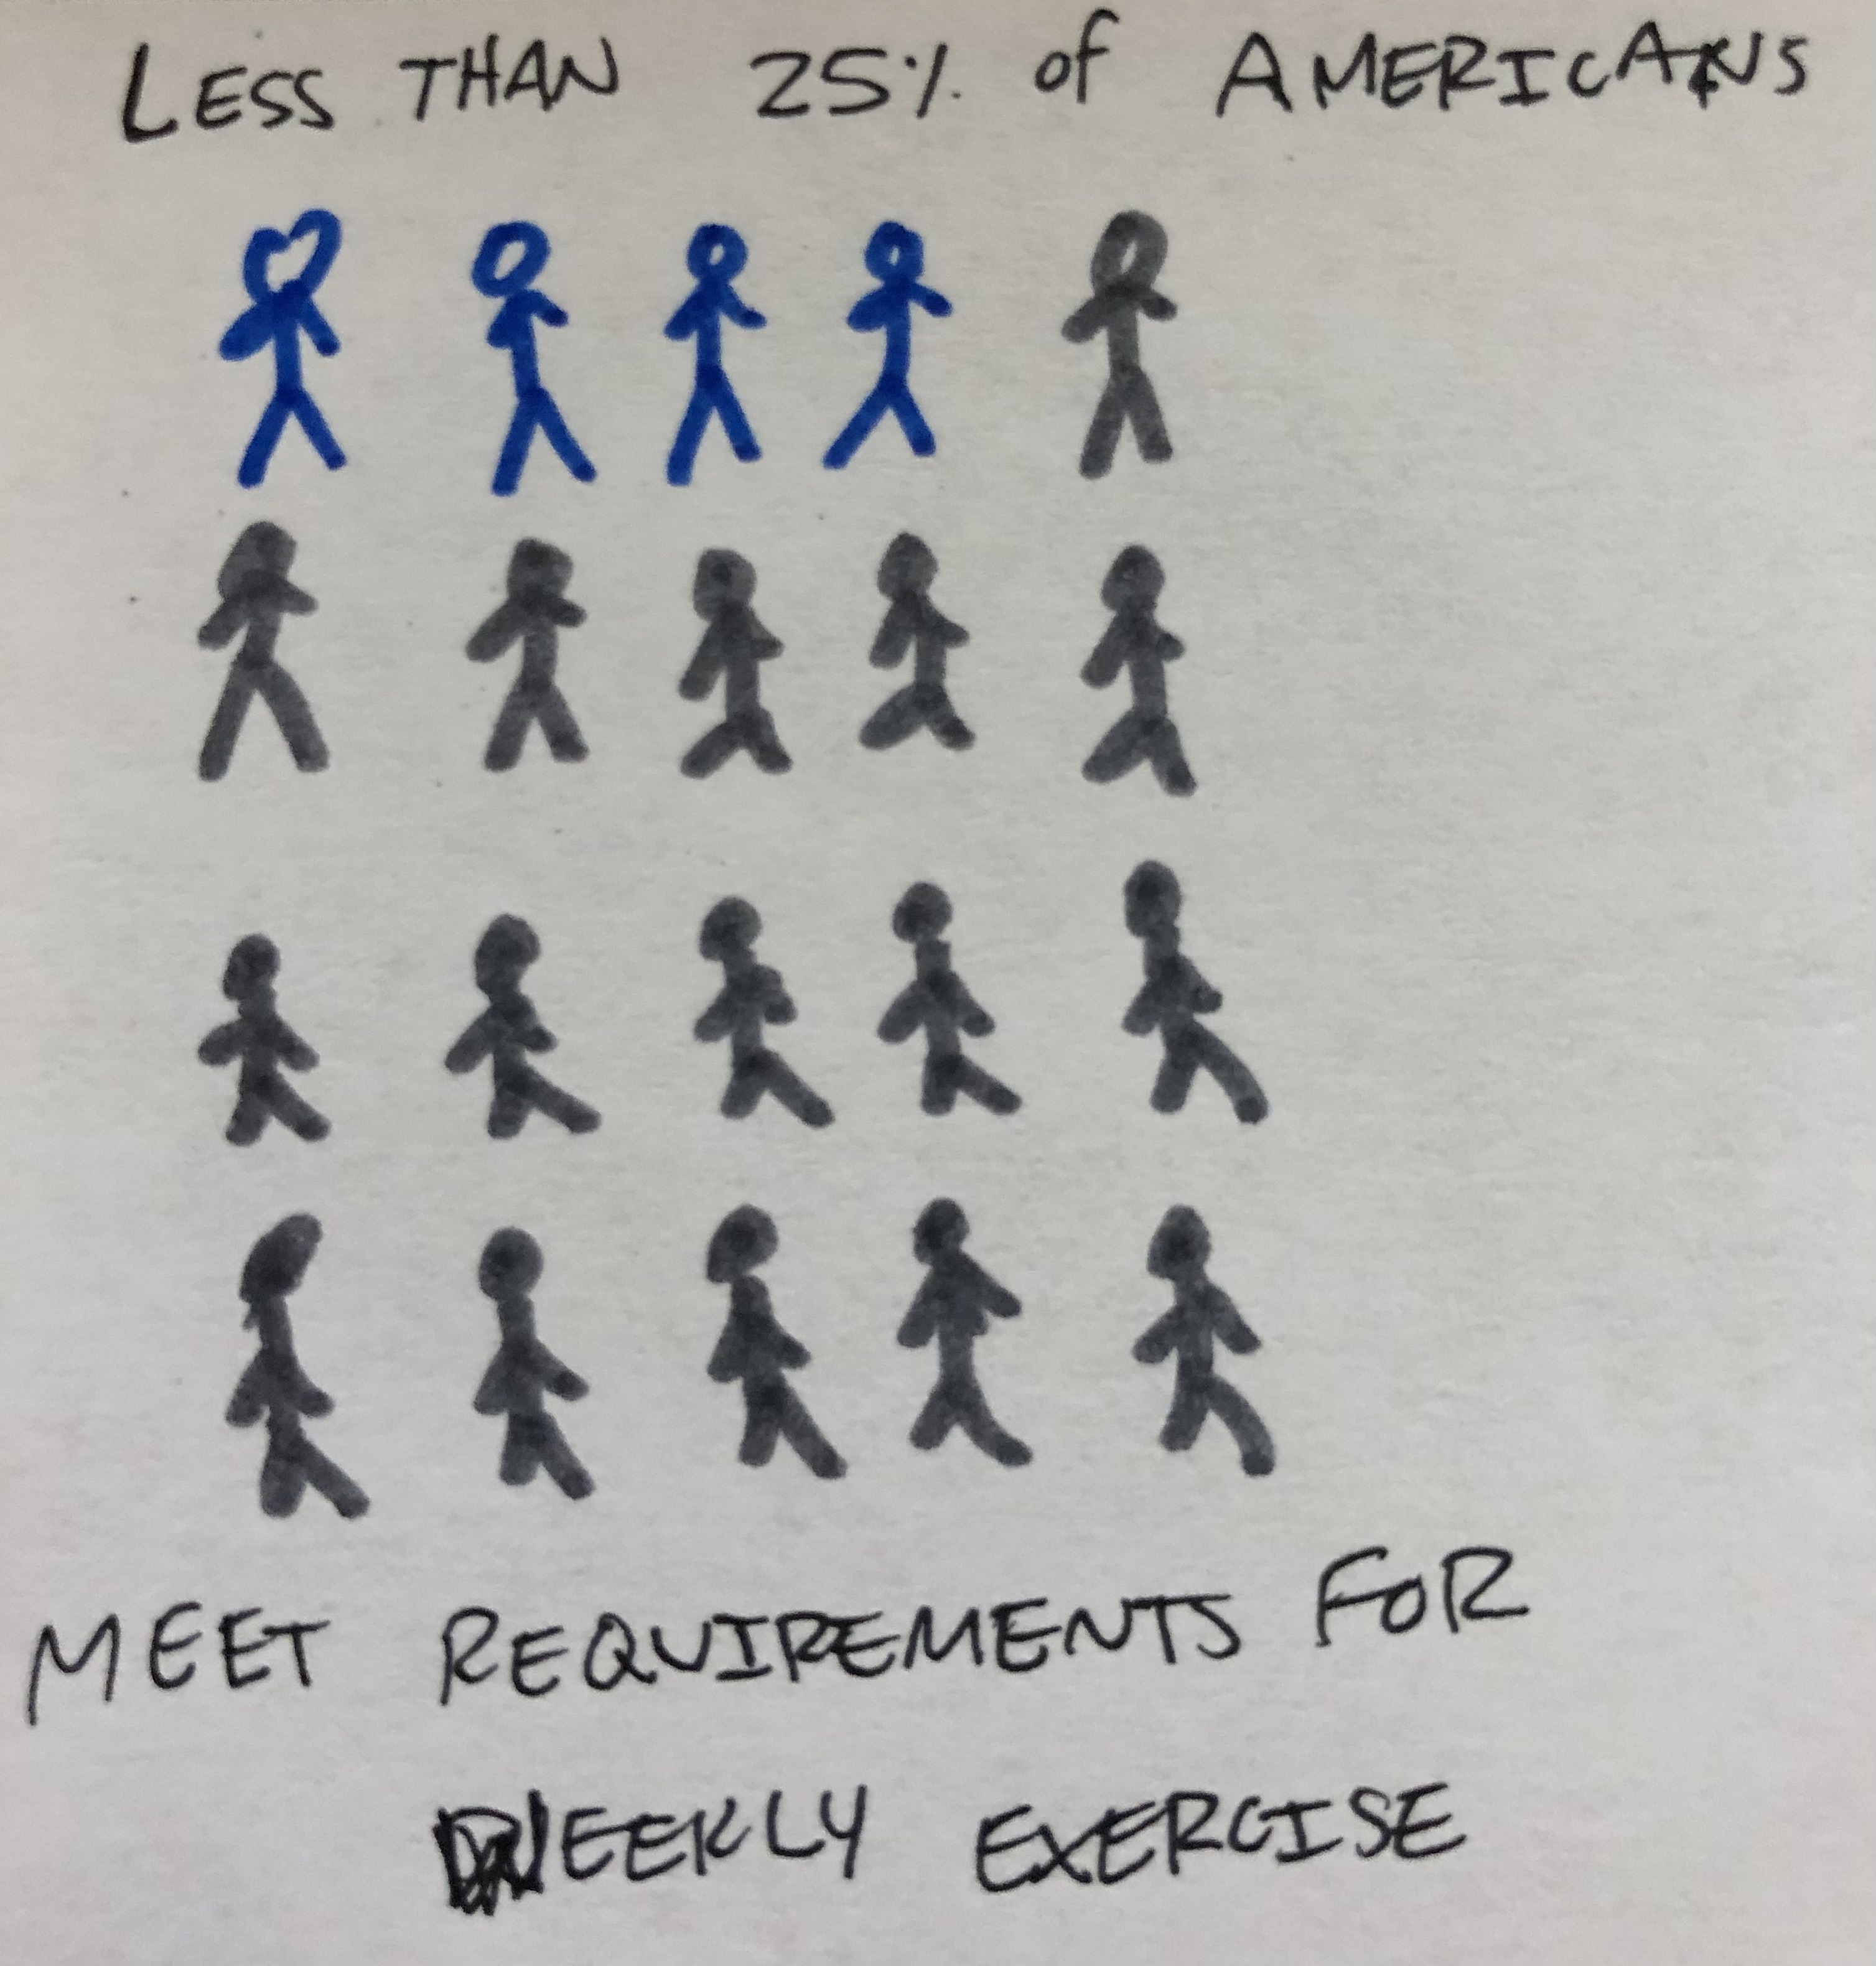 LESS THAN 25% of AMERICANS
MEET REQUIREMENTS FOR
WEEKLY EXERCISE